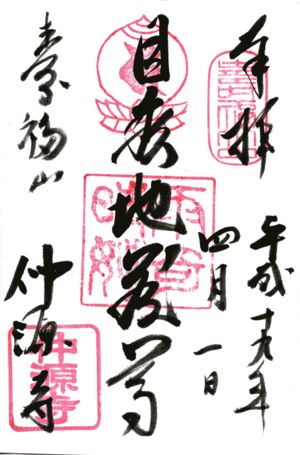 奉拝
平成十九年
四月一日
目疾地蔵尊
寿福山
仲源寺
雨奇晴好
仲源寺